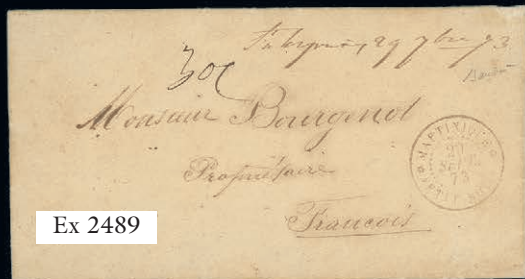 29 7bre 73
30c
Monsieur Bourgenot
Propriétaire
François
MARTINIQUE
SEPT
73
Ex 2489